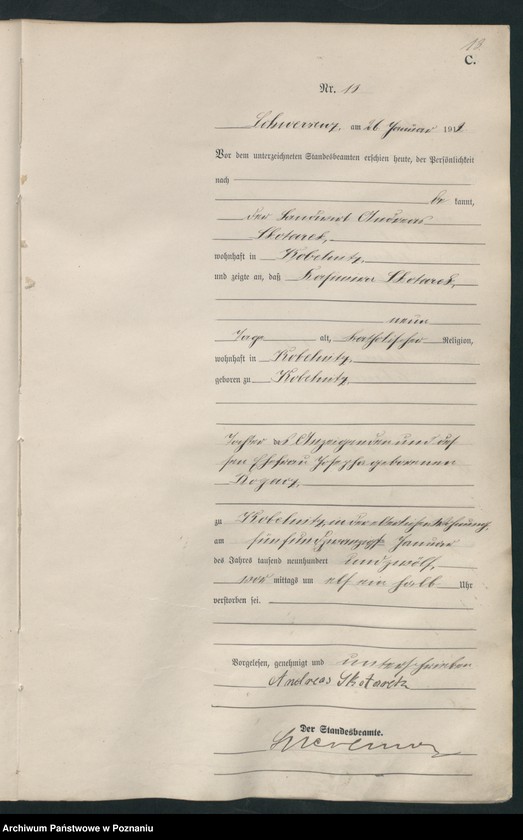 13.
C.
Nr. 13
Schwersenz, am 26 Januar 1912
Vor dem unterzeichneten Standesbeamten erschien heute, der Persönlichkeit
nach
be kannt,
der Landwirt Andreas
Skotarek,
wohnhaft in Kobelnitz,
und zeigte an, daß Skotarek,
neun
Tage alt, katholischer Religion,
wohnhaft in Kobelnitz,
geboren zu Kobelnitz,
Tochter des Anzeigenden und des
sen Ehefrau Josepha geborenen
zu Kobelnitz, in der elterlichen Wohnung,
am fünfundzwanzigst Januar
des Jahres tausend neunhundert und zwölf,
vor mittags um elf ein halb Uhr
verstorben sei.
Vorgelesen, genehmigt und unterschrieben
Andreas Skotarek
Der Standesbeamte.
Archiwum Państwowe w Poznaniu